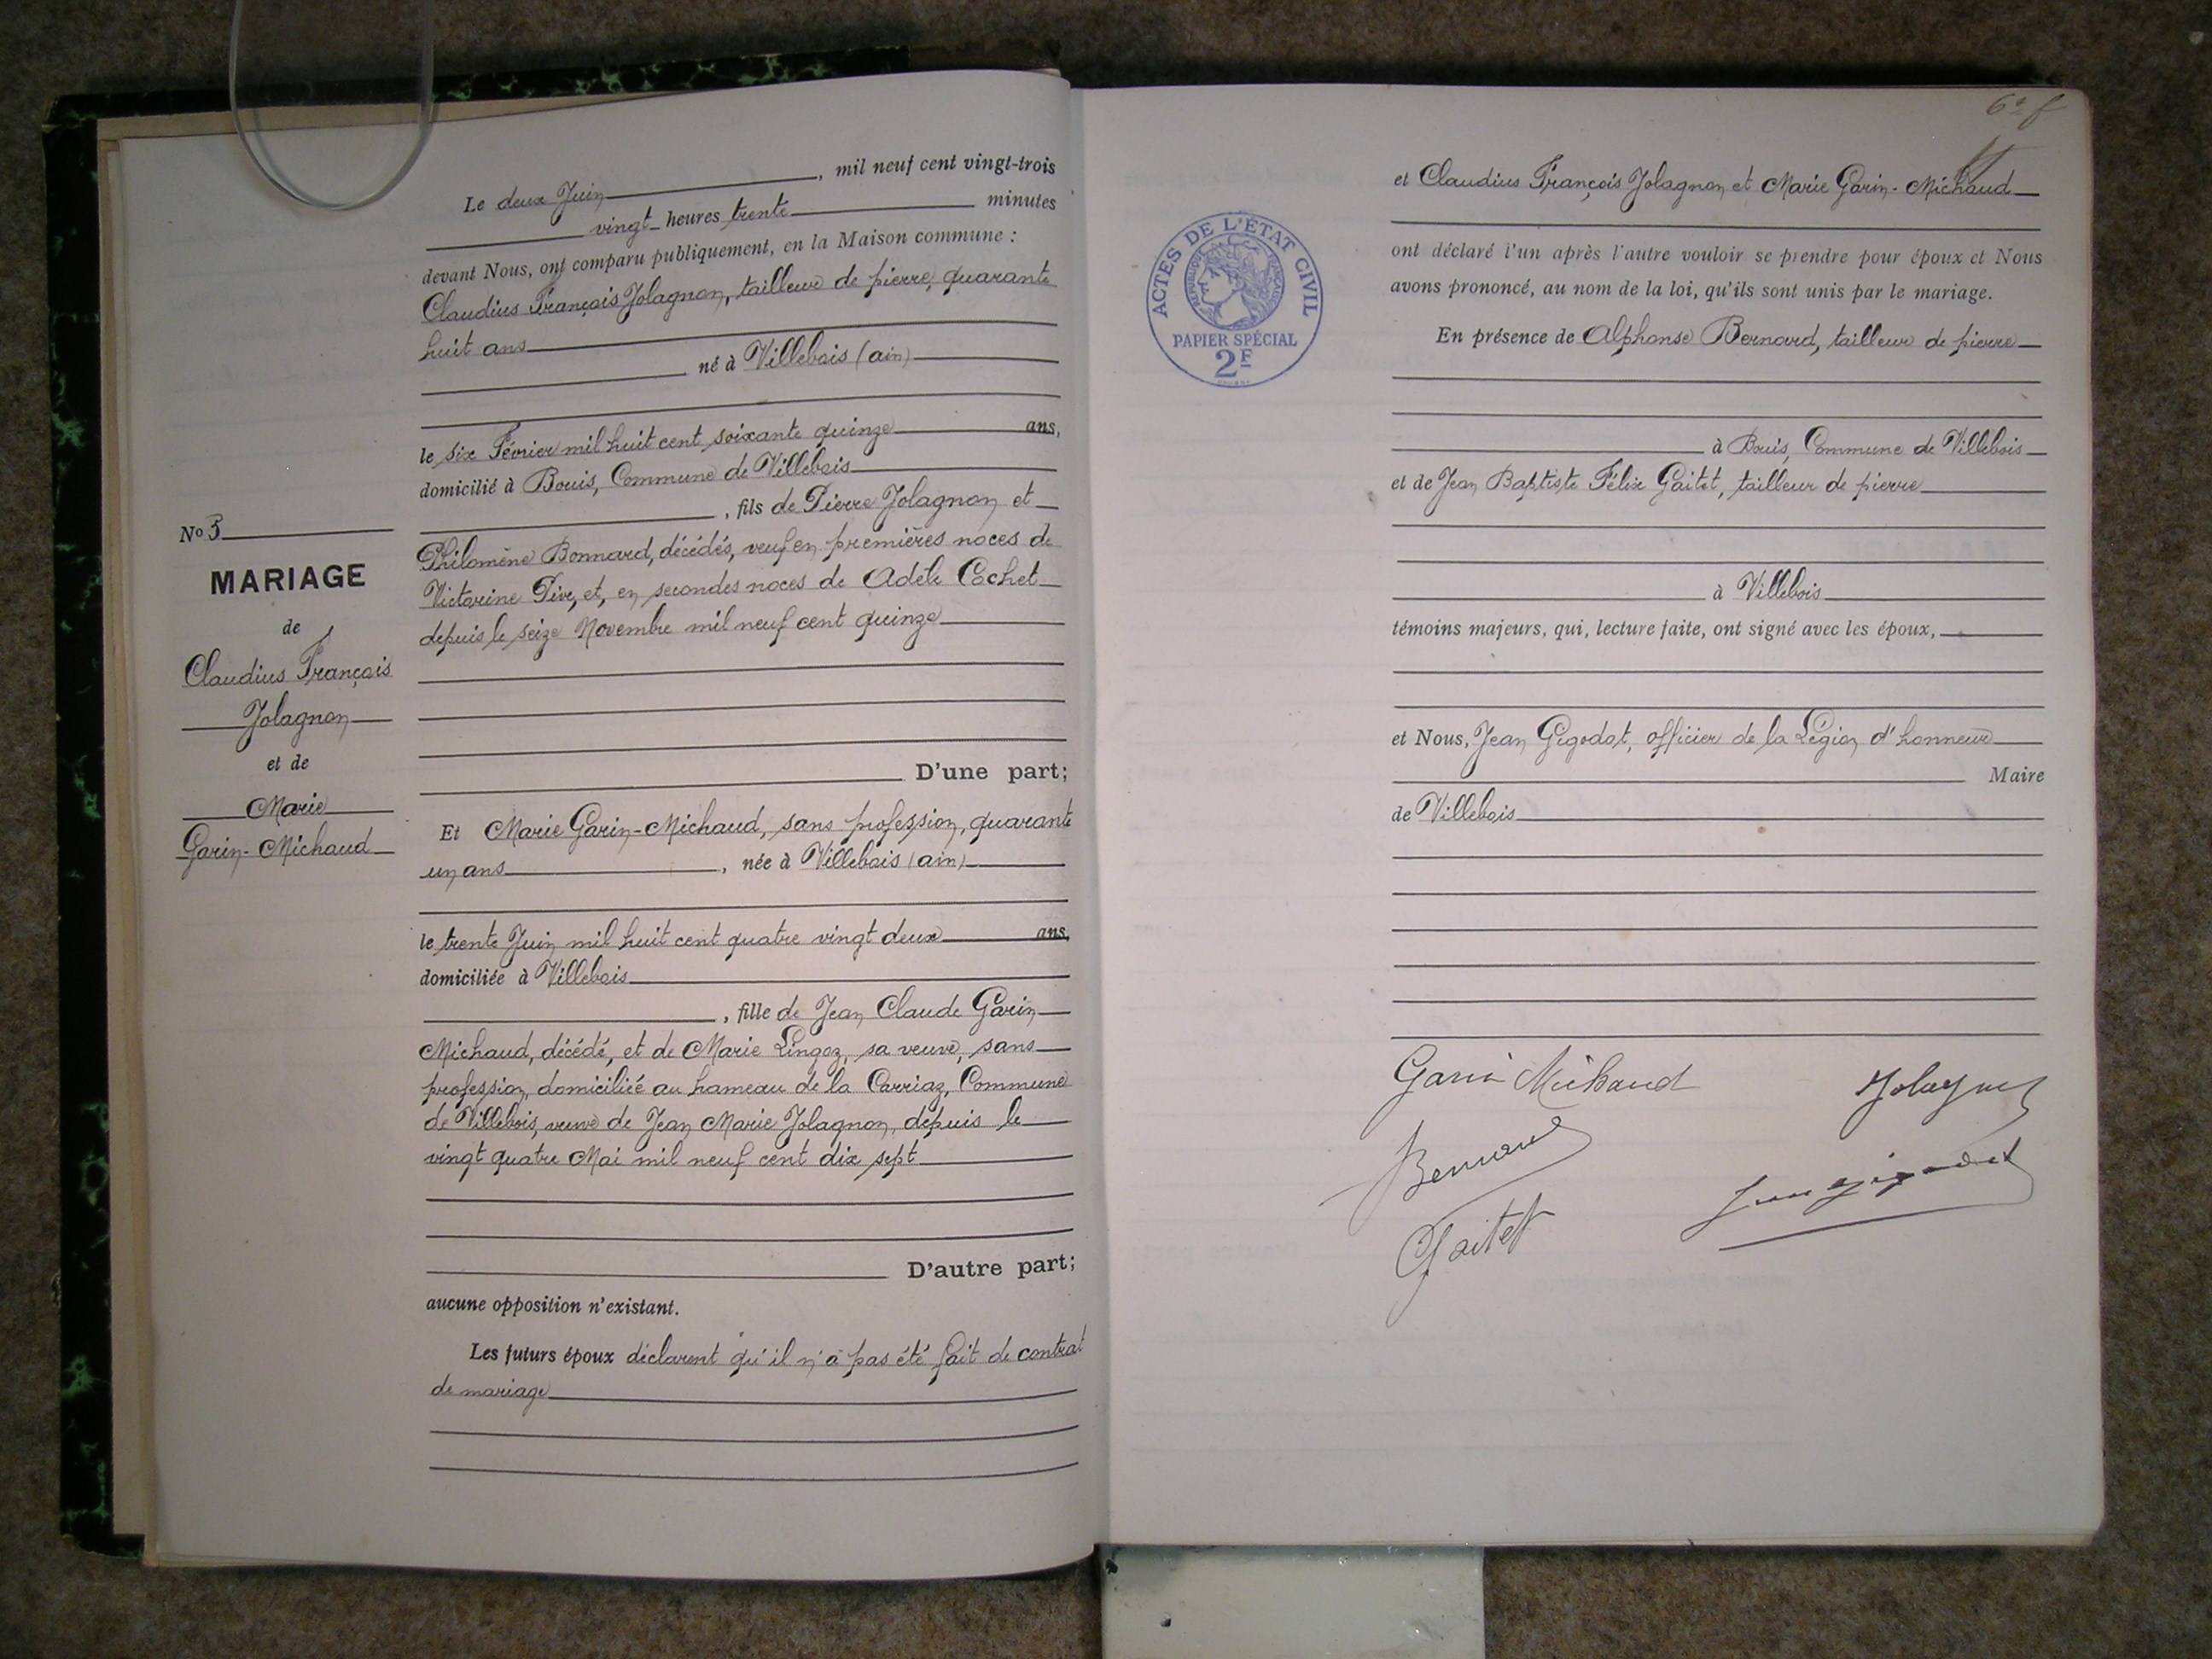 Le deux Juin, mil neuf cent vingt-trois
vingt heures trente minutes
devant Nous, ont comparu publiquement, en la Maison commune :
Claudius François Jolagnon, tailleur de pierre, quarante
huit ans
né à Villebois (ain)
le six Février mil huit cent soixante quinze ans,
domicilié à Bouis, Commune de Villebois
, fils de Pierre Jolagnon et
Philomène Bonnard, décédés, veuf en premières noces de
Victorine Pive, et, en secondes noces de Adèle Cochet
depuis le seize Novembre mil neuf cent quinze
D'une part;
No 3
MARIAGE
de
Claudius François
Jolagnon
et de
Marie
Garin-Michaud
Et Marie Garin-Michaud, sans profession, quarante
un ans, née à Villebois (ain)
le trente Juin mil huit cent quatre vingt deux ans,
domiciliée à Villebois
, fille de Jean Claude Garin
Michaud, décédé, et de Marie Lingoz, sa veuve, sans
profession, domiciliée au hameau de la Carriaz, Commune
de Villebois, veuve de Jean Marie Jolagnon, depuis le
vingt quatre Mai mil neuf cent dix sept
D'autre part;
aucune opposition n'existant.
Les futurs époux déclarent qu'il n'a pas été fait de contrat
de mariage
et Claudius François Jolagnon et Marie Garin-Michaud
ont déclaré l'un après l'autre vouloir se prendre pour époux et Nous
avons prononcé, au nom de la loi, qu'ils sont unis par le mariage.
En présence de Alphonse Bernard, tailleur de pierre
à Bouis, Commune de Villebois
et de Jean Baptiste Félix Gaitet, tailleur de pierre
à Villebois
témoins majeurs, qui, lecture faite, ont signé avec les époux,
et Nous, Jean Gigodot, officier de la Légion d'honneur
Maire
de Villebois
ACTES DE L'ÉTAT CIVIL
RÉPUBLIQUE FRANÇAISE
PAPIER SPÉCIAL
2F
Garin Michaud
Jolagnon
Bernard
Jean Gigodot
Gaitet